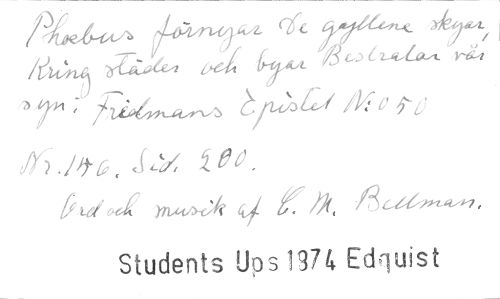 Phoebus förnyar De gyllene skyar,
Kring städer och byar Bestralar vår
syn. Fredmans Epistel N:o 50
Nr. 146. Sid. 200.
Ord och musik af C. M. Bellman.
Students Ups 1874 Edquist